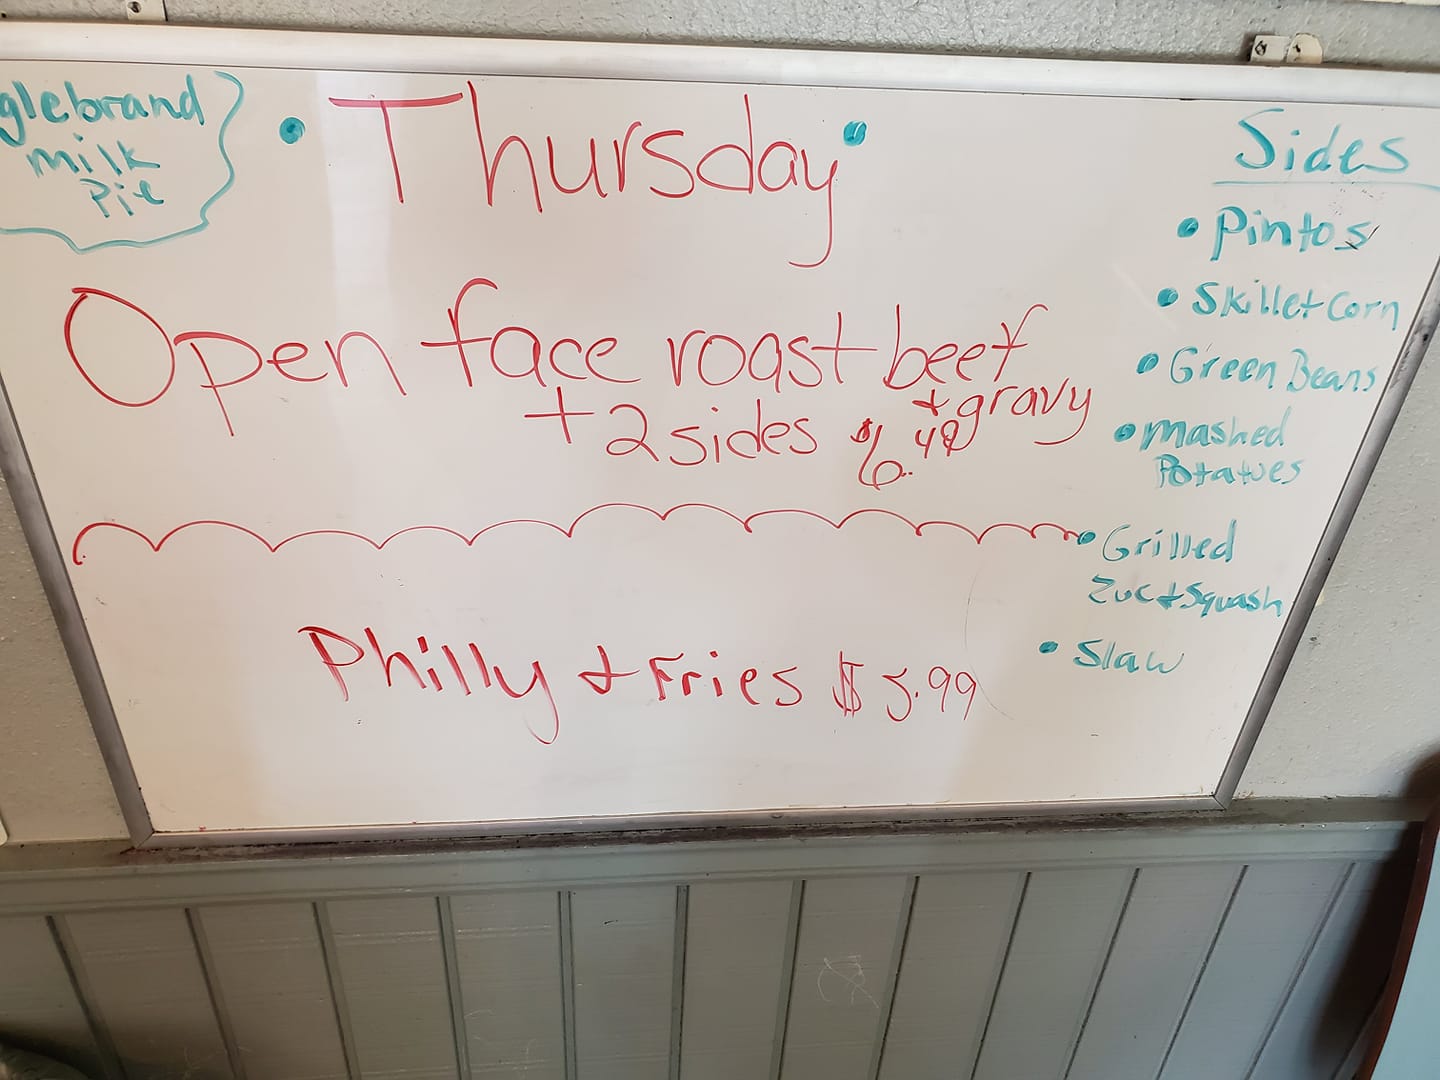 glebrand
milk
Pie
• Thursday •
Open face roast beef
+ gravy
+ 2 sides $6.49
Philly & Fries $5.99
Sides
• Pintos
• Skillet Corn
• Green Beans
• Mashed
Potatoes
• Grilled
Zuc & Squash
• Slaw